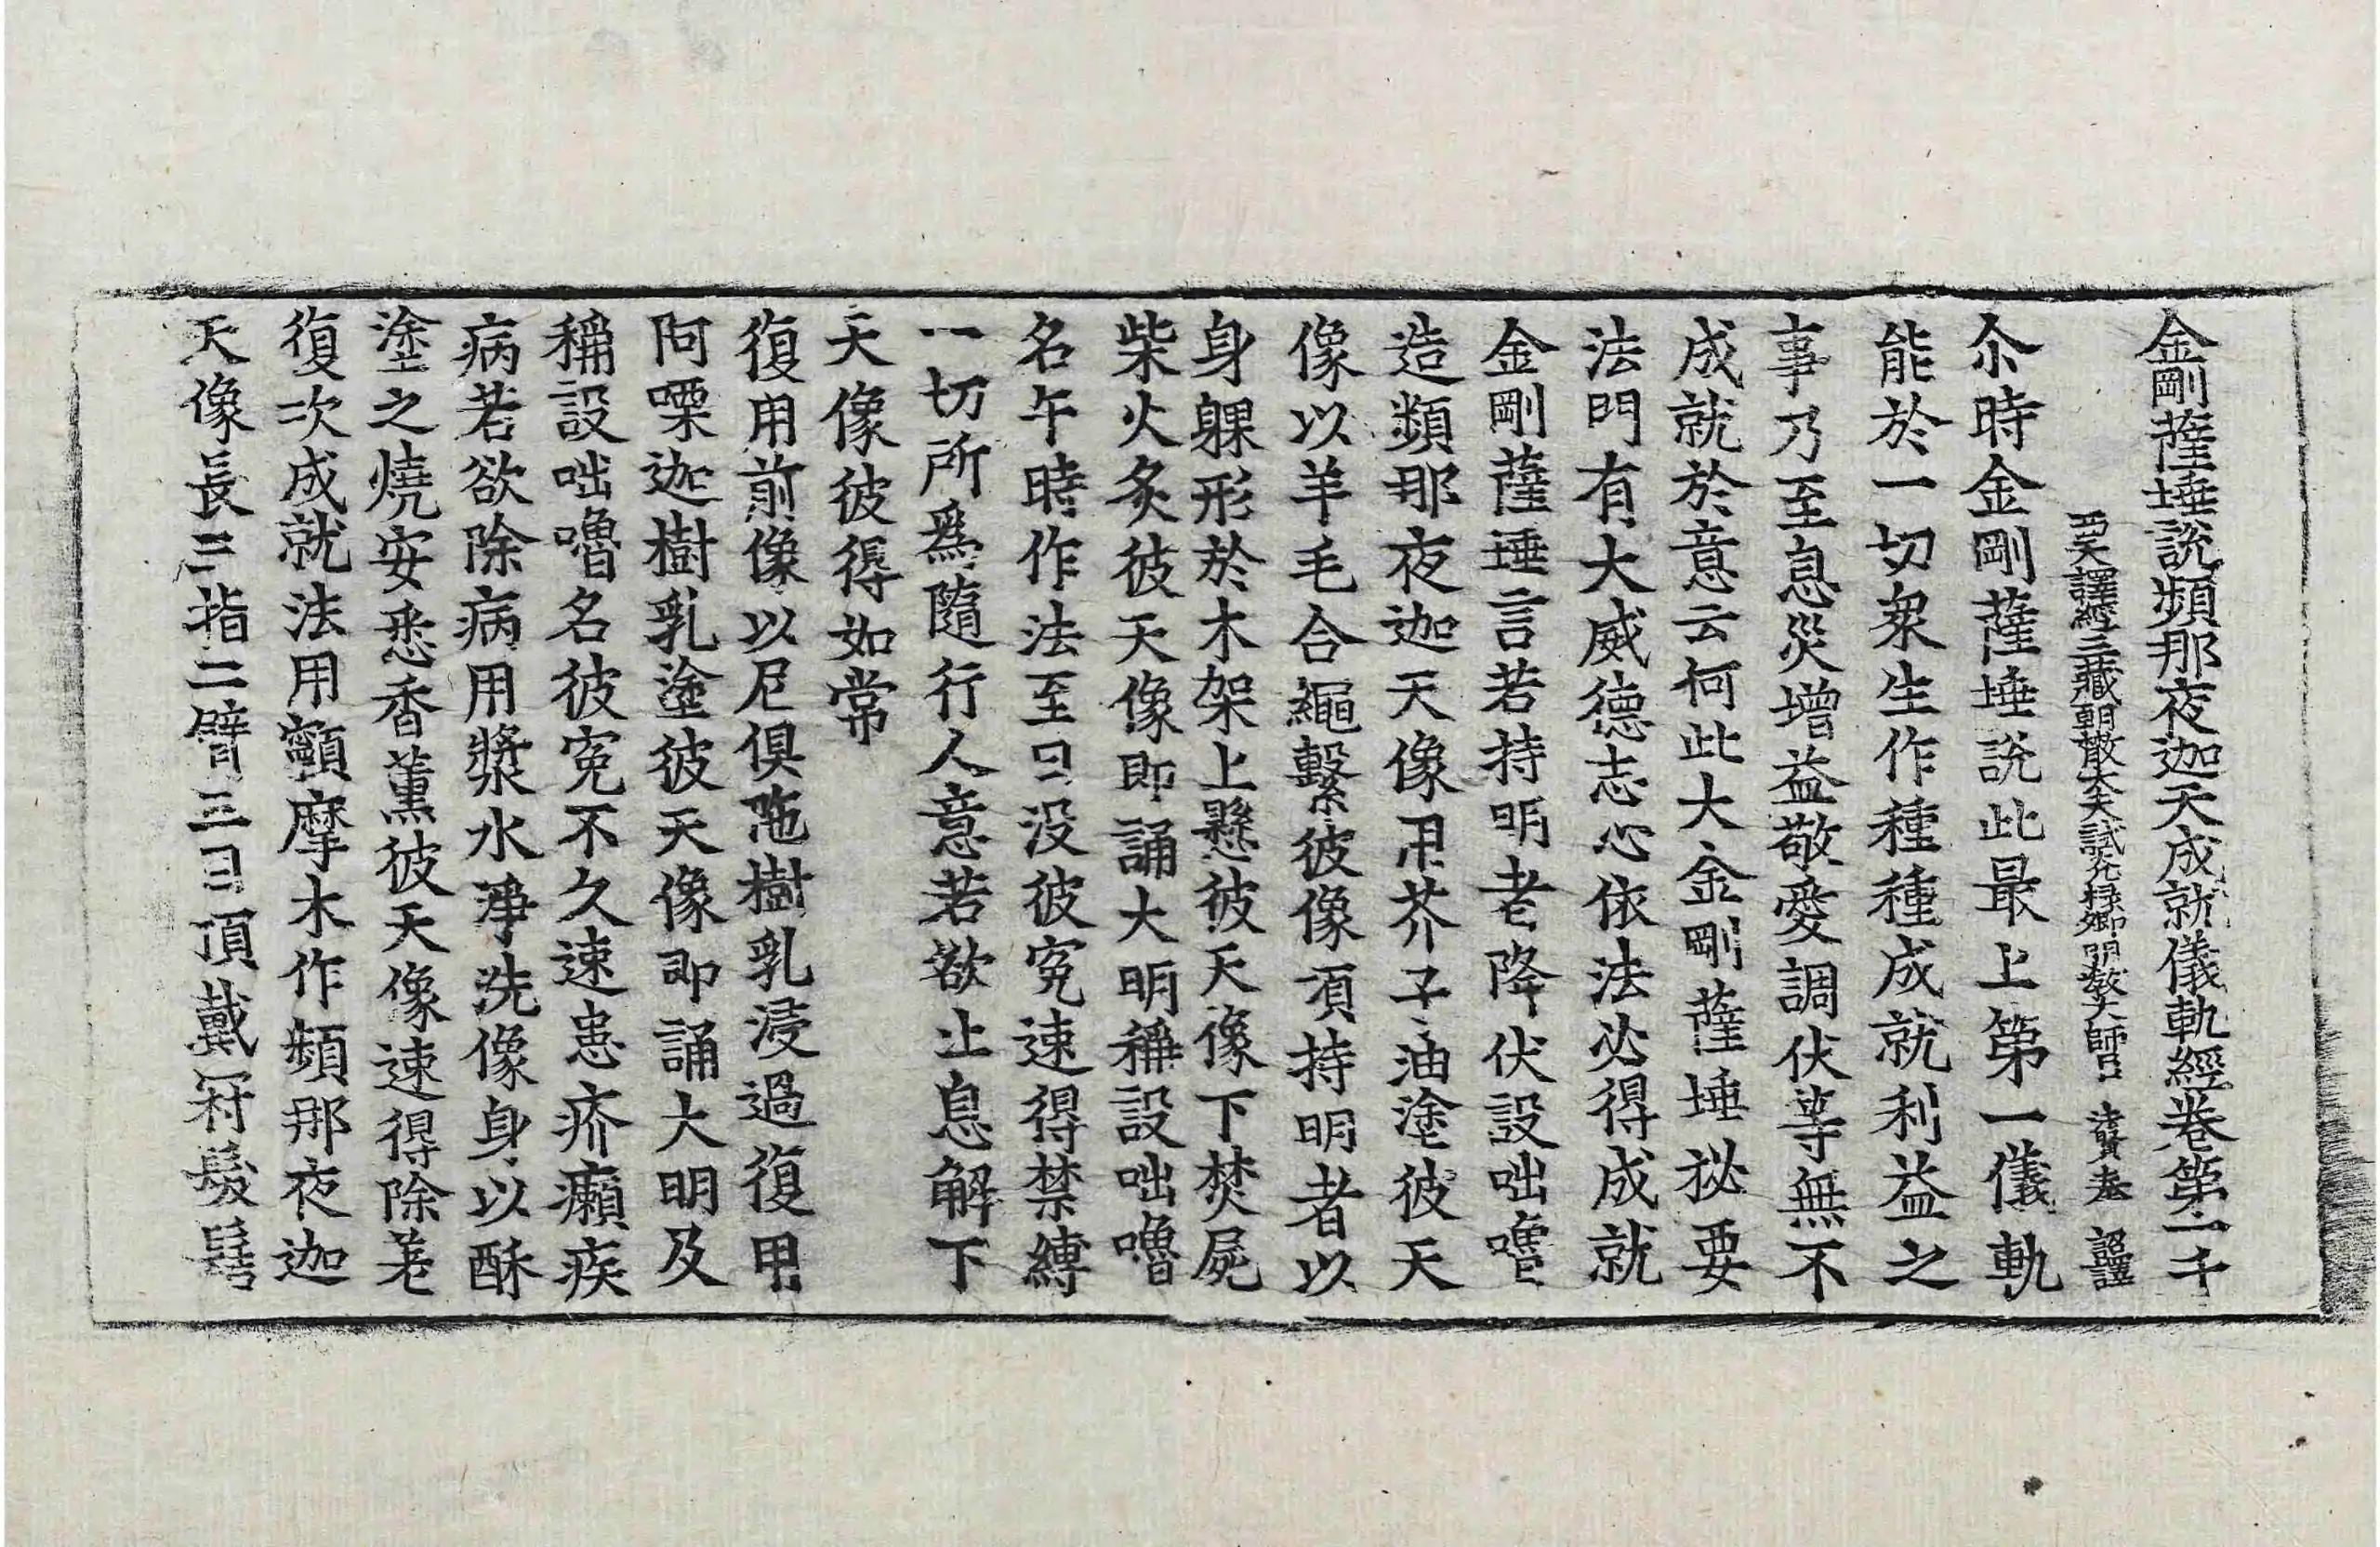 金剛薩埵說頻那夜迦天成就儀軌經卷第二 千
西天譯經三藏朝散大夫試光祿卿明教大師臣 法賢奉 詔譯
尒時金剛薩埵說此最上第一儀軌
能於一切衆生作種種成就利益之
事乃至息災增益敬愛調伏等無不
成就於意云何此大金剛薩埵祕要
法門有大威德志心依法必得成就
金剛薩埵言若持明者降伏設咄嚕
造頻那夜迦天像用芥子油塗彼天
像以羊毛合繩繫彼像項持明者以
身躶形於木架上懸彼天像下焚屍
柴火炙彼天像即誦大明稱設咄嚕
名午時作法至日没彼寃速得禁縛
一切所爲隨行人意若欲止息解下
天像彼得如常
復用前像以尼俱陁樹乳浸過復用
阿㗚迦樹乳塗彼天像即誦大明及
稱設咄嚕名彼寃不久速患疥癩疾
病若欲除病用漿水淨洗像身以酥
塗之燒安悉香薰彼天像速得除差
復次成就法用顪摩木作頻那夜迦
天像長三指二臂三目頂戴冠髮髻